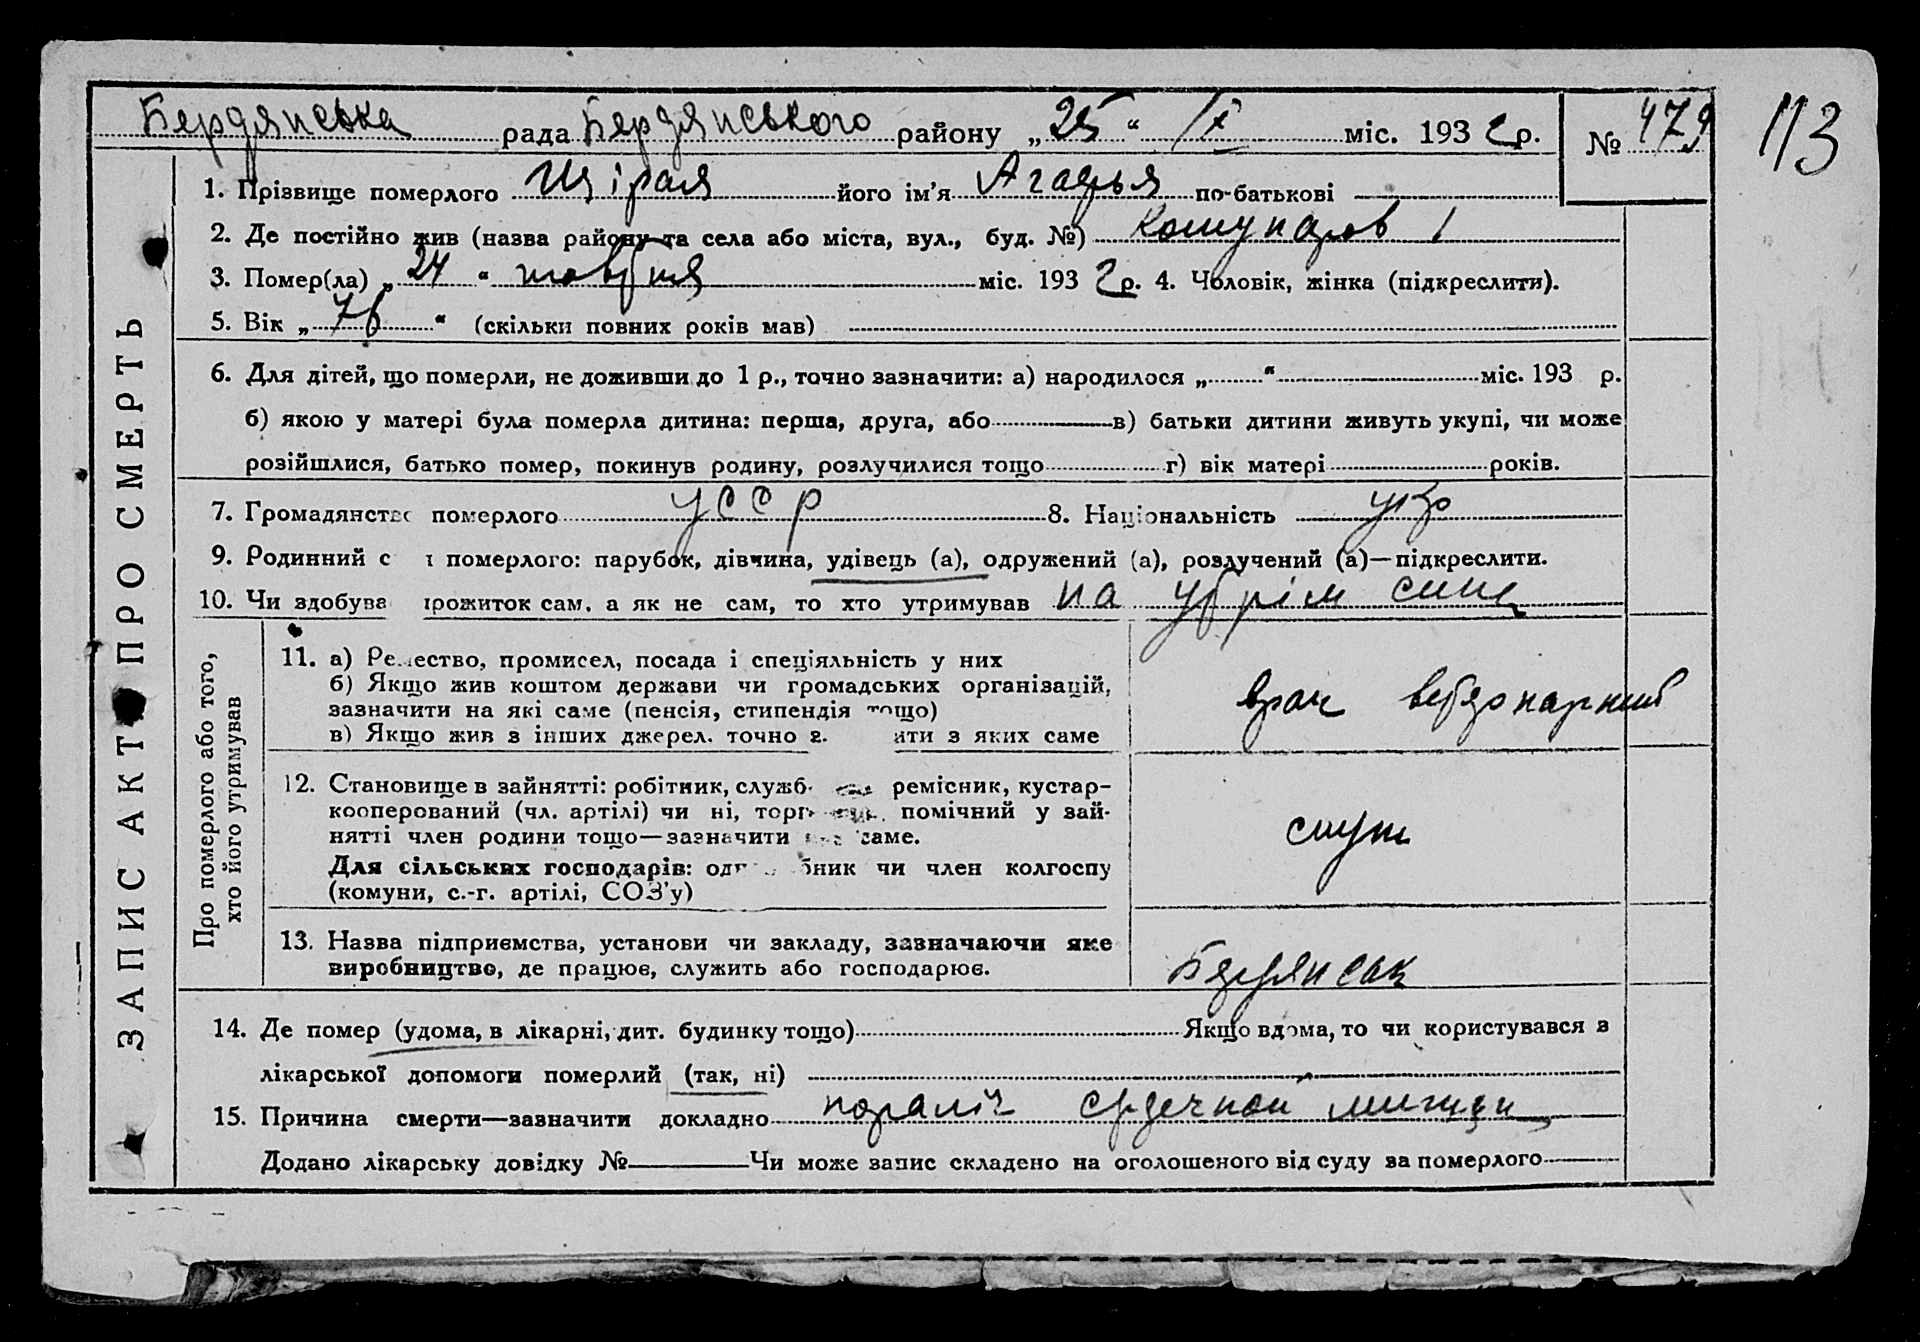 Бердянська рада Бердянського району „25“ IX міс. 1932 р. № 479 113
1. Прізвище померлого Щірая його ім’я Агафья по-батькові
2. Де постійно жив (назва району та села або міста, вул., буд. №) Комунаров 1
3. Помер(ла) „24“ міс. 1932 р. 4. Чоловік, жінка (підкреслити).
5. Вік „76“ (скільки повних років мав)
6. Для дітей, що померли, не доживши до 1 р., точно зазначити: а) народилося „ “ міс. 193 р.
б) якою у матері була померла дитина: перша, друга, або в) батьки дитини живуть укупі, чи може
розійшлися, батько помер, покинув родину, розлучилися тощо г) вік матері років.
7. Громадянство померлого УССР 8. Національність укр
9. Родинний с і померлого: парубок, дівчина, удівець (а), одружений (а), розлучений (а)—підкреслити.
10. Чи здобува прожиток сам, а як не сам, то хто утримував на сина
11. а) Ремество, промисел, посада і спеціяльність у них
б) Якщо жив коштом держави чи громадських організацій,
зазначити на які саме (пенсія, стипендія тощо)
в) Якщо жив з інших джерел, точно з ити з яких саме
врач
12. Становище в зайнятті: робітник, служб ремісник, кустар-
кооперований (чл. артілі) чи ні, торг помічний у зай-
нятті член родини тощо—зазначити саме.
Для сільських господарів: од бник чи член колгоспу
(комуни, с.-г. артілі, СОЗ’у)
служ
13. Назва підприємства, установи чи закладу, зазначаючи яке
виробництво, де працює, служить або господарює.
Бердянськ
14. Де помер (удома, в лікарні, дит. будинку тощо) Якщо вдома, то чи користувався з
лікарської допомоги померлий (так, ні)
15. Причина смерти—зазначити докладно параліч сердечной мишци
Додано лікарську довідку № Чи може запис складено на оголошеного від суду за померлого
ЗАПИС АКТ ПРО СМЕРТЬ
Про померлого або того,
хто його утримував